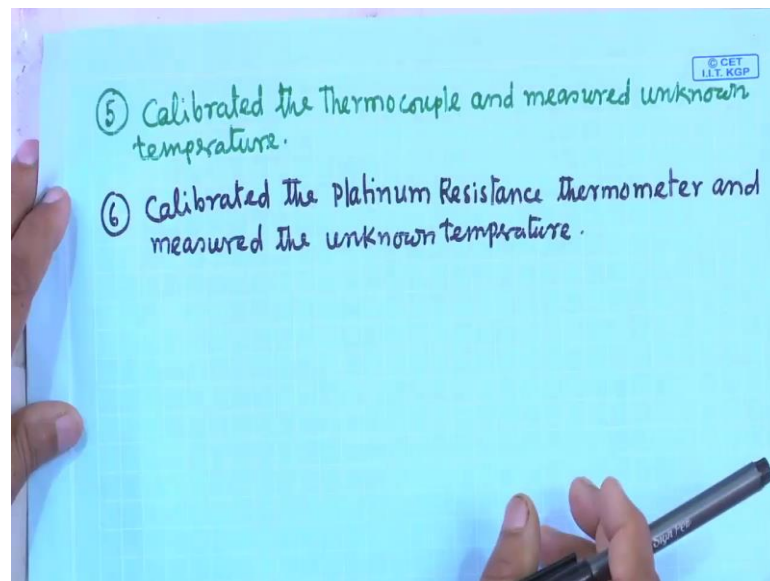 © CET
I.I.T. KGP
⑤ Calibrated the Thermocouple and measured unknown
temperature.
⑥ Calibrated the Platinum Resistance thermometer and
measured the unknown temperature.
Sign Pen